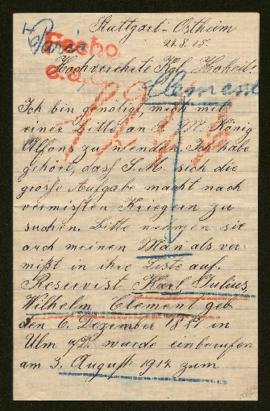 Stuttgart-Ostheim
Paris
Fecho
Hochverehrte Kgl. Hoheit!
Clement
Ich bin genötigt, mich mit
einer Bitte an S.M. König
Alfons zu wenden. Ich habe
gehört, dass S.M. sich die
grosse Aufgabe macht nach
vermissten Kriegern zu
suchen. Bitte nehmen sie
auch meinen Man als ver-
mißt in ihre Liste auf.
Reservist Karl Julius
Wilhelm Clement geb.
den 6. Dezember
Ulm a/D. wurde einberufen
am 3. August 1914 zum